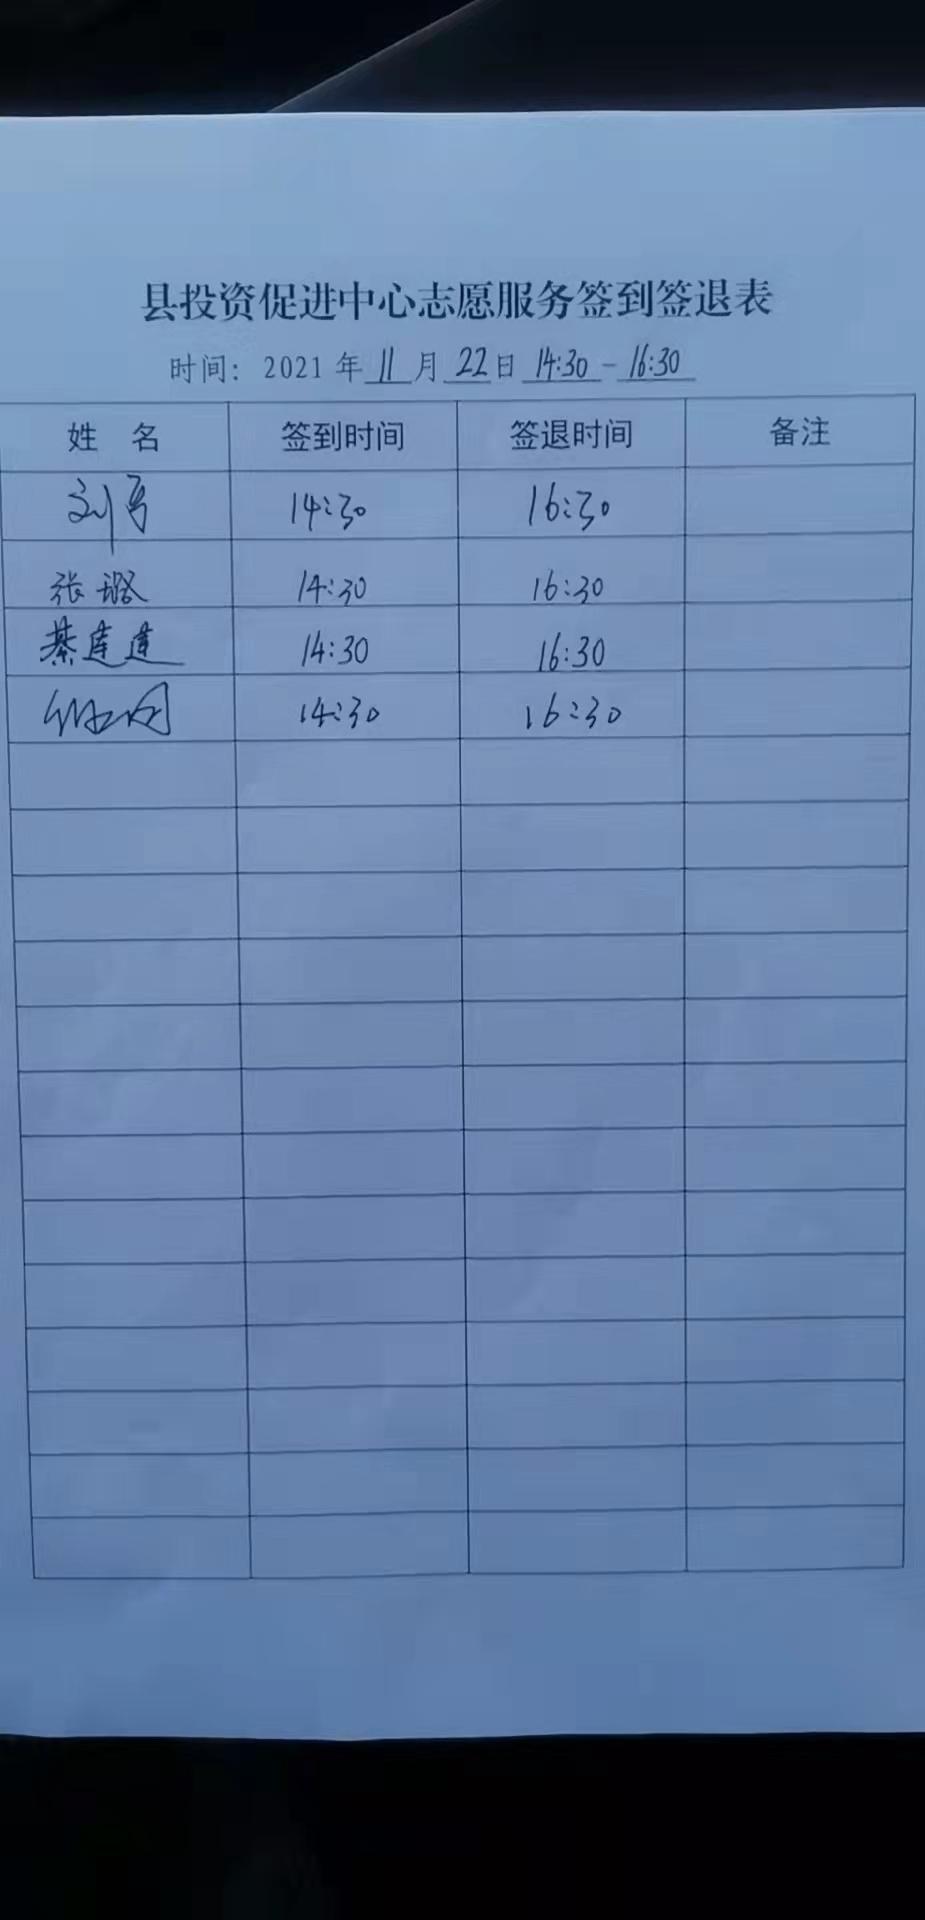 县投资促进中心志愿服务签到签退表
时间：2021年11月22日 14:30-16:30
姓 名 签到时间 签退时间 备注
刘 14:30 16:30
张璐 14:30 16:30
綦莲莲 14:30 16:30
14:30 16:30